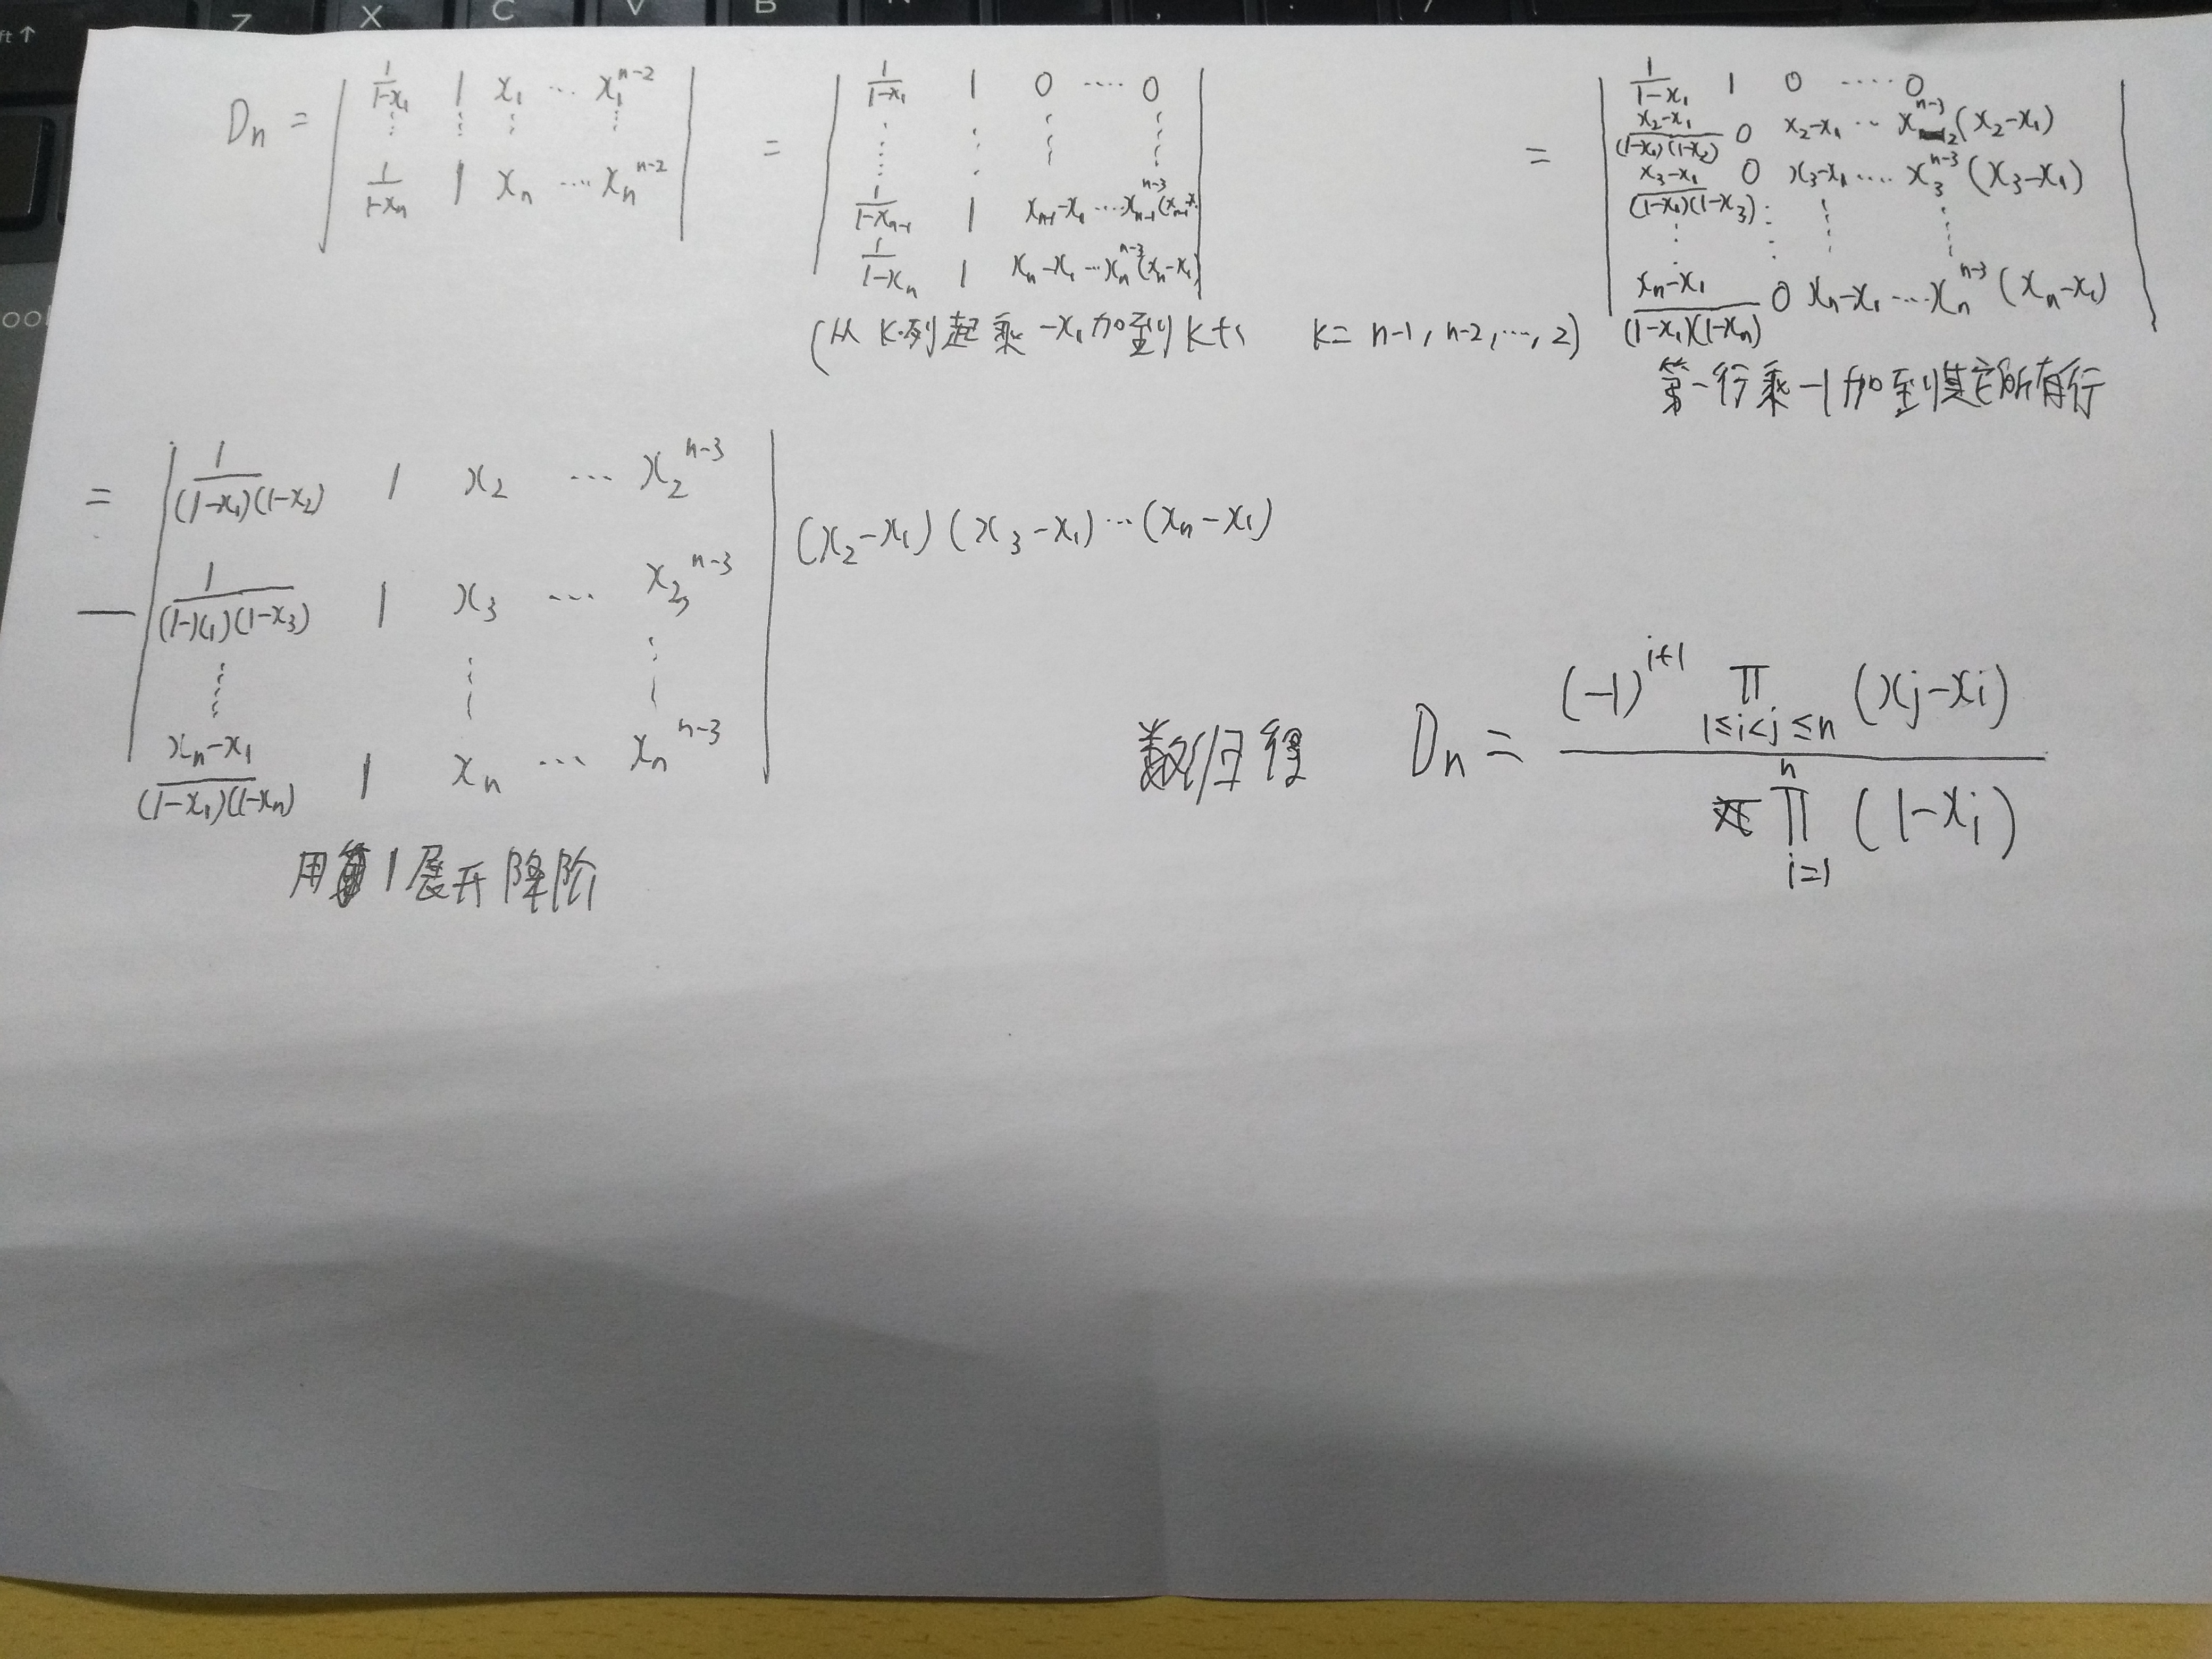 Z X C V B
D_n = | \frac{1}{1-x_1} 1 x_1 … x_1^{n-2} |
| ⋮ ⋮ ⋮ ⋮ |
| \frac{1}{1-x_n} 1 x_n … x_n^{n-2} |
= | \frac{1}{1-x_1} 1 0 …… 0 |
| ⋮ ⋮ ⋮ ⋮ |
| \frac{1}{1-x_{n-1}} 1 x_{n-1}-x_1 … x_{n-1}^{n-3}(x_{n-1}-x |
| \frac{1}{1-x_n} 1 x_n-x_1 … x_n^{n-3}(x_n-x_1) |
(从K列起乘-x_1加到K+1 K= n-1, n-2, …, 2)
= | \frac{1}{1-x_1} 1 0 …… 0 |
| \frac{x_2-x_1}{(1-x_1)(1-x_2)} 0 x_2-x_1 … x_2^{n-3}(x_2-x_1) |
| \frac{x_3-x_1}{(1-x_1)(1-x_3)} 0 x_3-x_1 …. x_3^{n-3}(x_3-x_1) |
| ⋮ ⋮ ⋮ ⋮ |
| \frac{x_n-x_1}{(1-x_1)(1-x_n)} 0 x_n-x_1 … x_n^{n-3}(x_n-x_1) |
第一行乘-1加到其它所有行
= — | \frac{1}{(1-x_1)(1-x_2)} 1 x_2 … x_2^{n-3} | (x_2-x_1)(x_3-x_1)…(x_n-x_1)
| \frac{1}{(1-x_1)(1-x_3)} 1 x_3 … x_3^{n-3} |
| ⋮ ⋮ ⋮ |
| \frac{x_n-x_1}{(1-x_1)(1-x_n)} 1 x_n … x_n^{n-3} |
用1展开降阶
数归得 D_n = \frac{(-1)^{i+1} ∏_{1≤i<j≤n} (x_j-x_i)}{∏_{i=1}^{n} (1-x_i)}